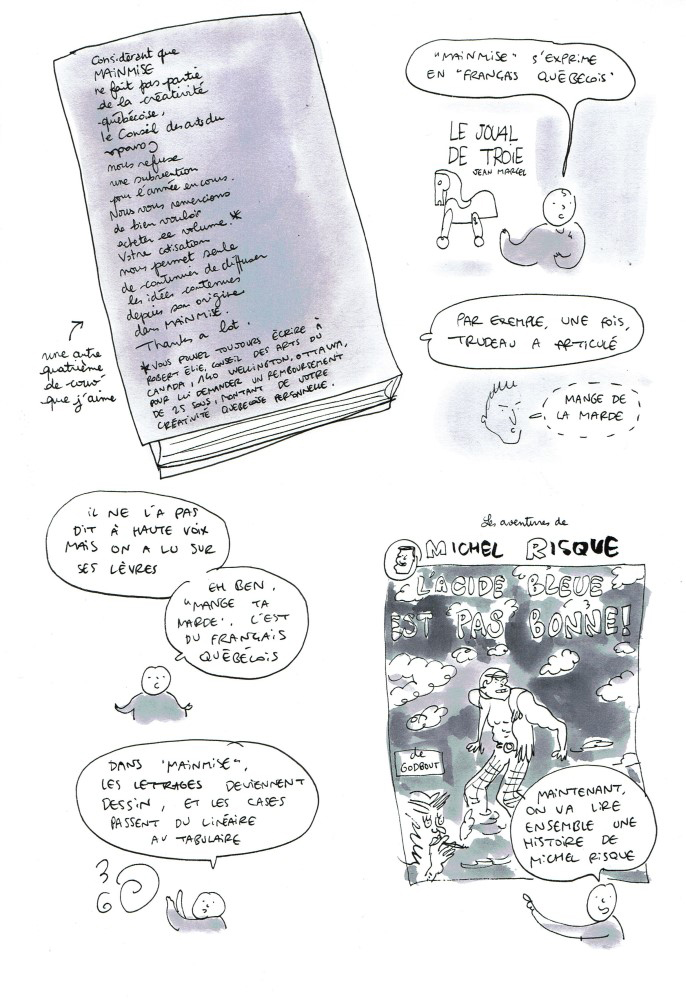 Considérant que
MAINMISE
ne fait pas partie
de la créativité
québécoise,
le Conseil des arts du
Canada
nous refuse
une subvention
pour l'année en cours.
Nous vous remercions
de bien vouloir
acheter ce volume.*
Votre cotisation
nous permet seule
de continuer de diffuser
les idées contenues
depuis son origine
dans MAINMISE.
Thanks a lot.
*VOUS POUVEZ TOUJOURS ÉCRIRE À
ROBERT ÉLIE, CONSEIL DES ARTS DU
CANADA, 140 WELLINGTON, OTTAWA,
POUR LUI DEMANDER UN REMBOURSEMENT
DE 25 SOUS, MONTANT DE VOTRE
CRÉATIVITÉ QUÉBECOISE PERSONNELLE.
une autre
quatrième
de couv'
que j'aime
"MAINMISE" S'EXPRIME
EN "FRANÇAIS QUÉBECOIS"
LE JOUAL
DE TROIE
JEAN MARCEL
PAR EXEMPLE, UNE FOIS,
TRUDEAU A ARTICULÉ
MANGE DE
LA MARDE
IL NE L'A PAS
DIT À HAUTE VOIX
MAIS ON A LU SUR
SES LÈVRES
EH BEN,
"MANGE TA
MARDE", C'EST
DU FRANÇAIS
QUÉBÉCOIS
DANS "MAINMISE",
LES LETRAGES DEVIENNENT
DESSIN, ET LES CASES
PASSENT DU LINÉAIRE
AU TABULAIRE
Les aventures de
MICHEL RISQUE
L'ACIDE BLEUE
EST PAS BONNE!
de
GODBOUT
MAINTENANT,
ON VA LIRE
ENSEMBLE UNE
HISTOIRE DE
MICHEL RISQUE